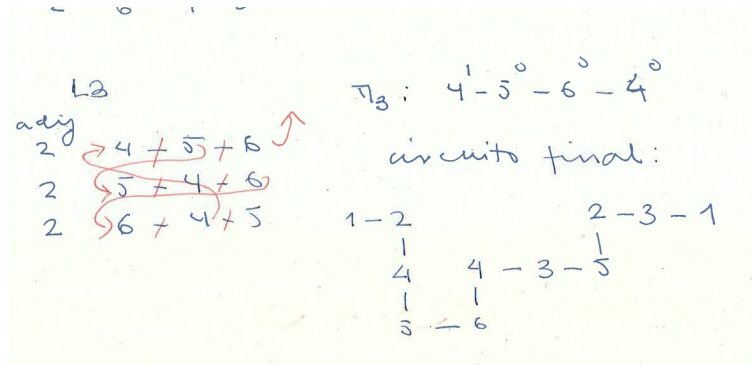 L3
adij
2 4 + 5 + 6
2 5 + 4 + 6
2 6 + 4 + 5
π3: 4¹ - 5⁰ - 6⁰ - 4⁰
circuito final:
1 - 2 2 - 3 - 1
| |
4 4 - 3 - 5
| |
5 - 6